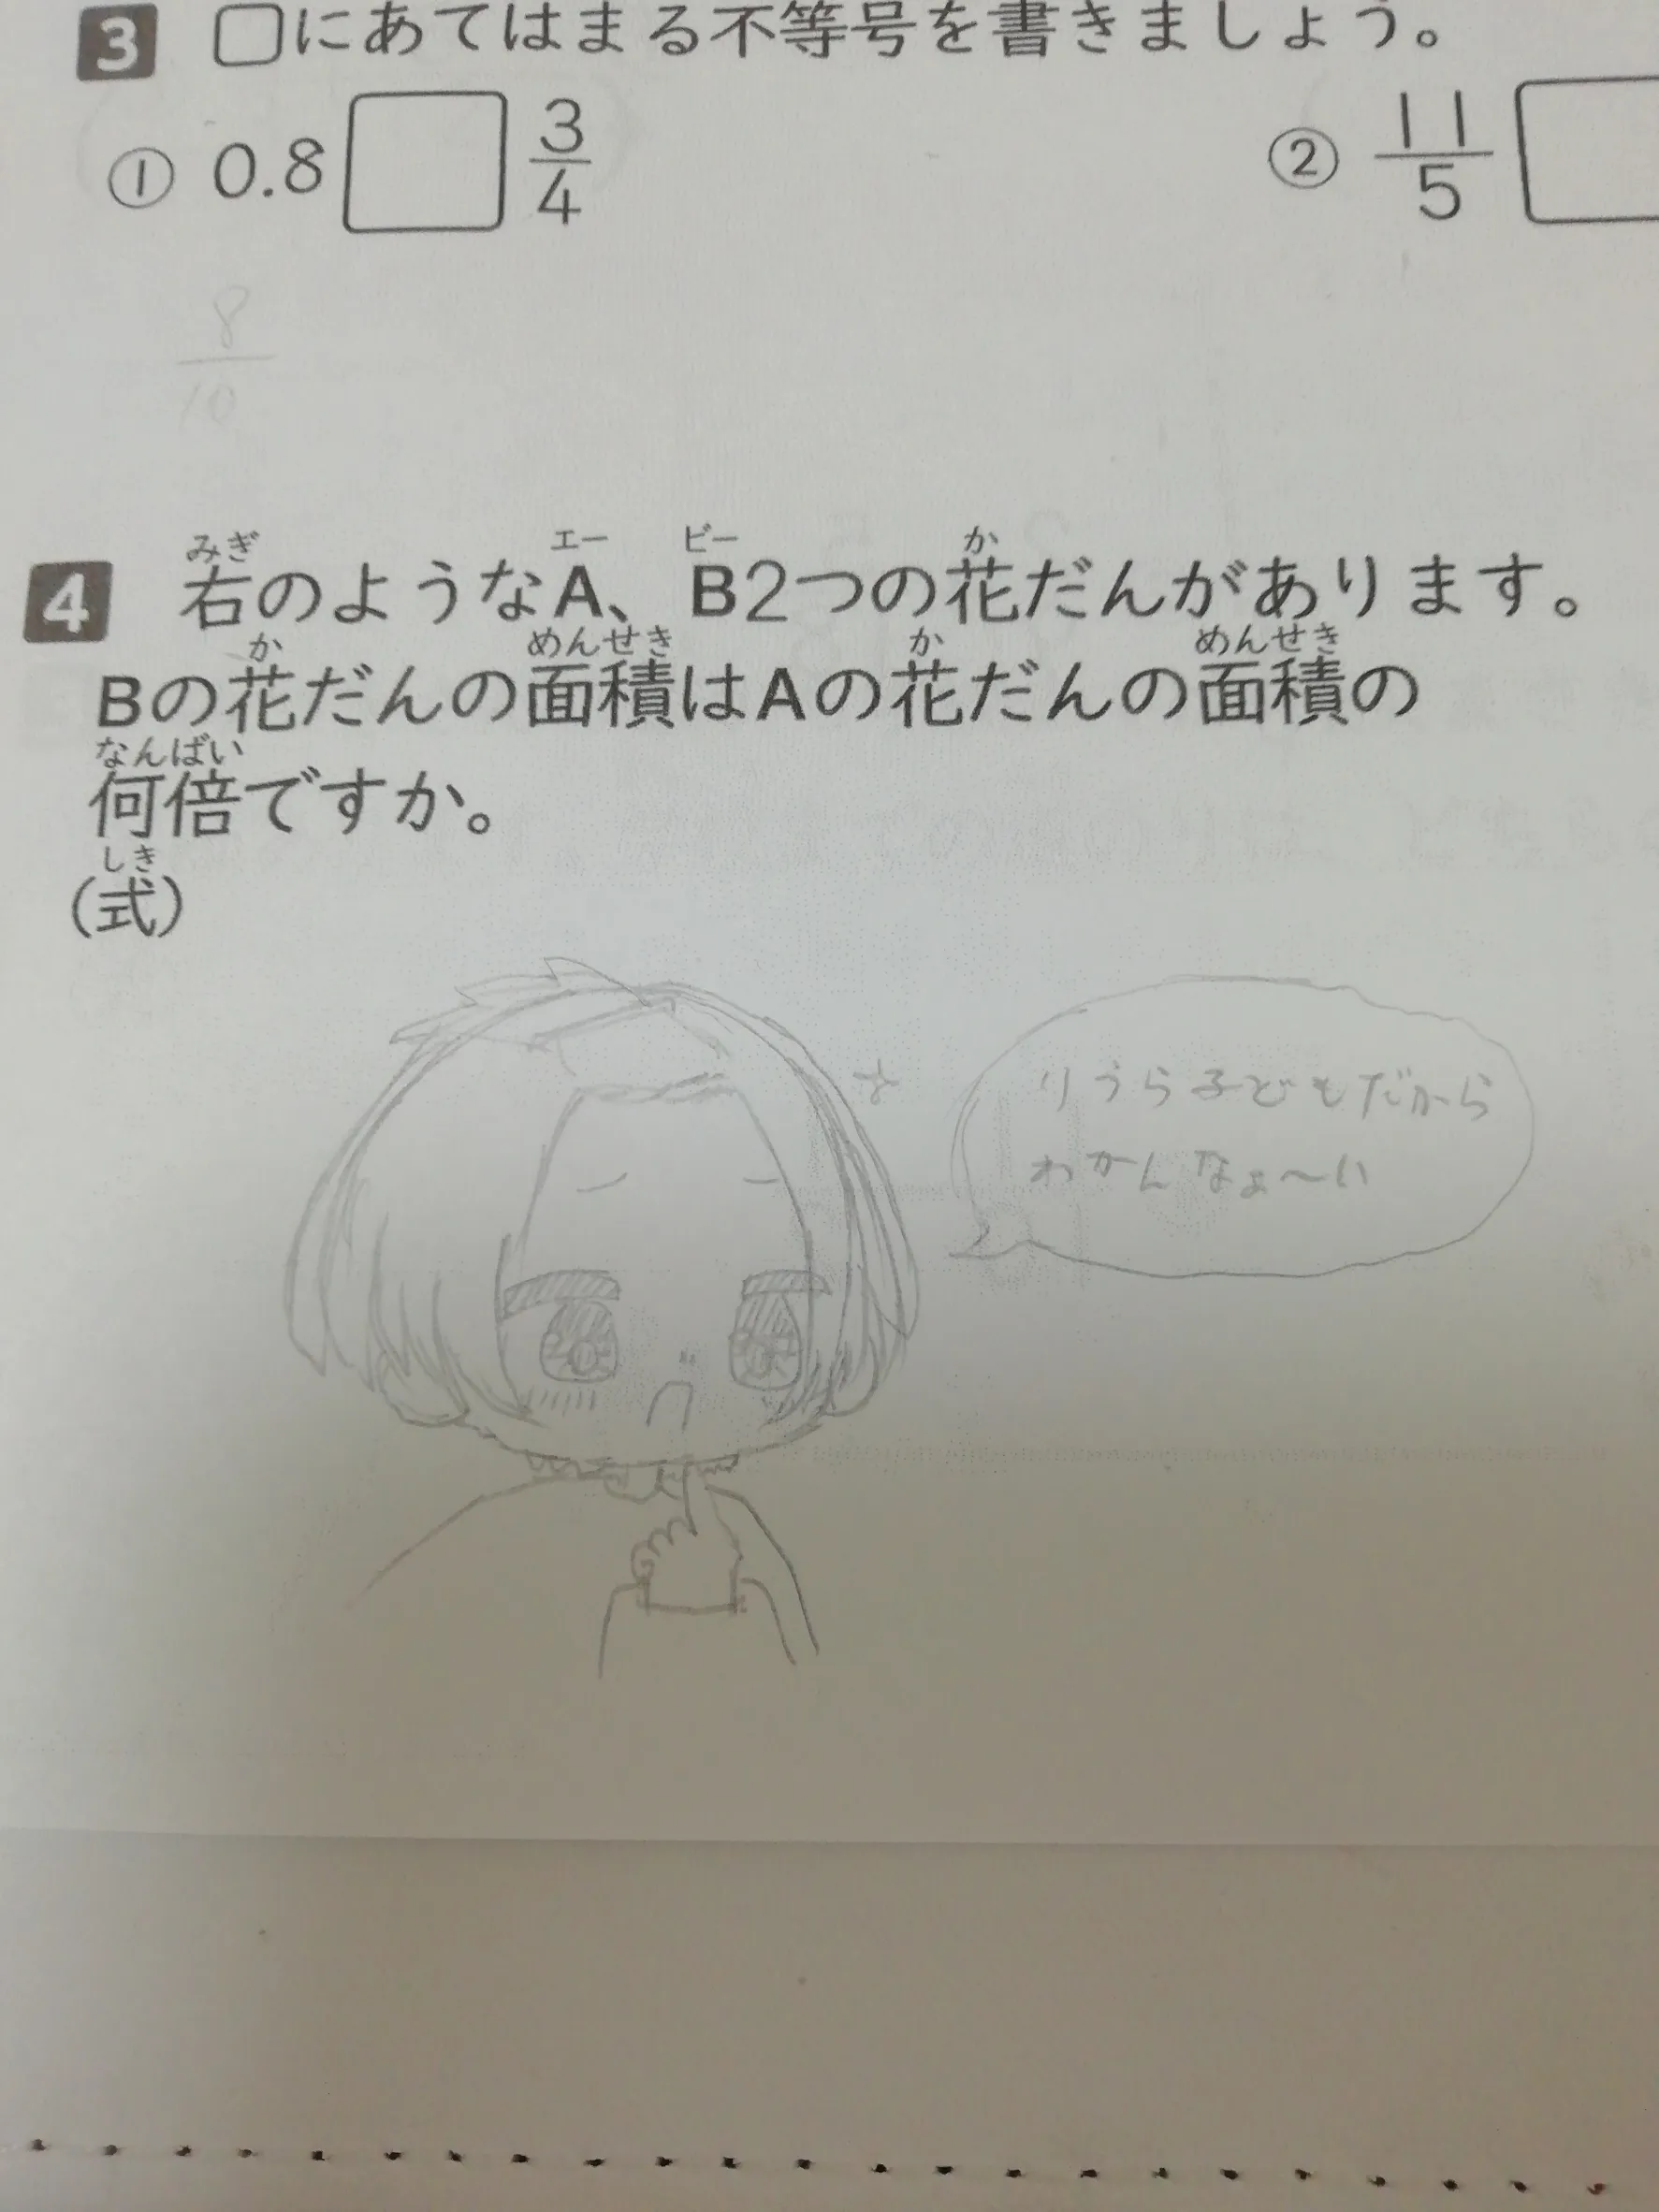 3 □にあてはまる不等号を書きましょう。
① 0.8 □ 3/4
② 11/5 □
8/10
4 右のようなA、B2つの花だんがあります。
みぎ エー ビー か
Bの花だんの面積はAの花だんの面積の
か めんせき か めんせき
何倍ですか。
なんばい
(式)
しき
りうら子どもだから
わかんなぁ〜い